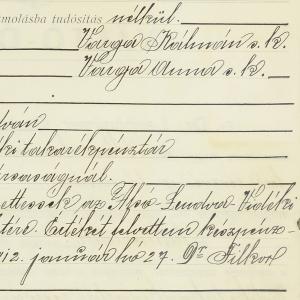 molásba tudósítás nélkül.
Varga Kálmán s.k.
Varga Anna s.k.
ván
ki takarékpénztár
rsaságnál.
ettessek az Alsó-Lendva-Vidéki
tére. Értékét felvettem készpénz-
912. január hó 27. Dr Filkor